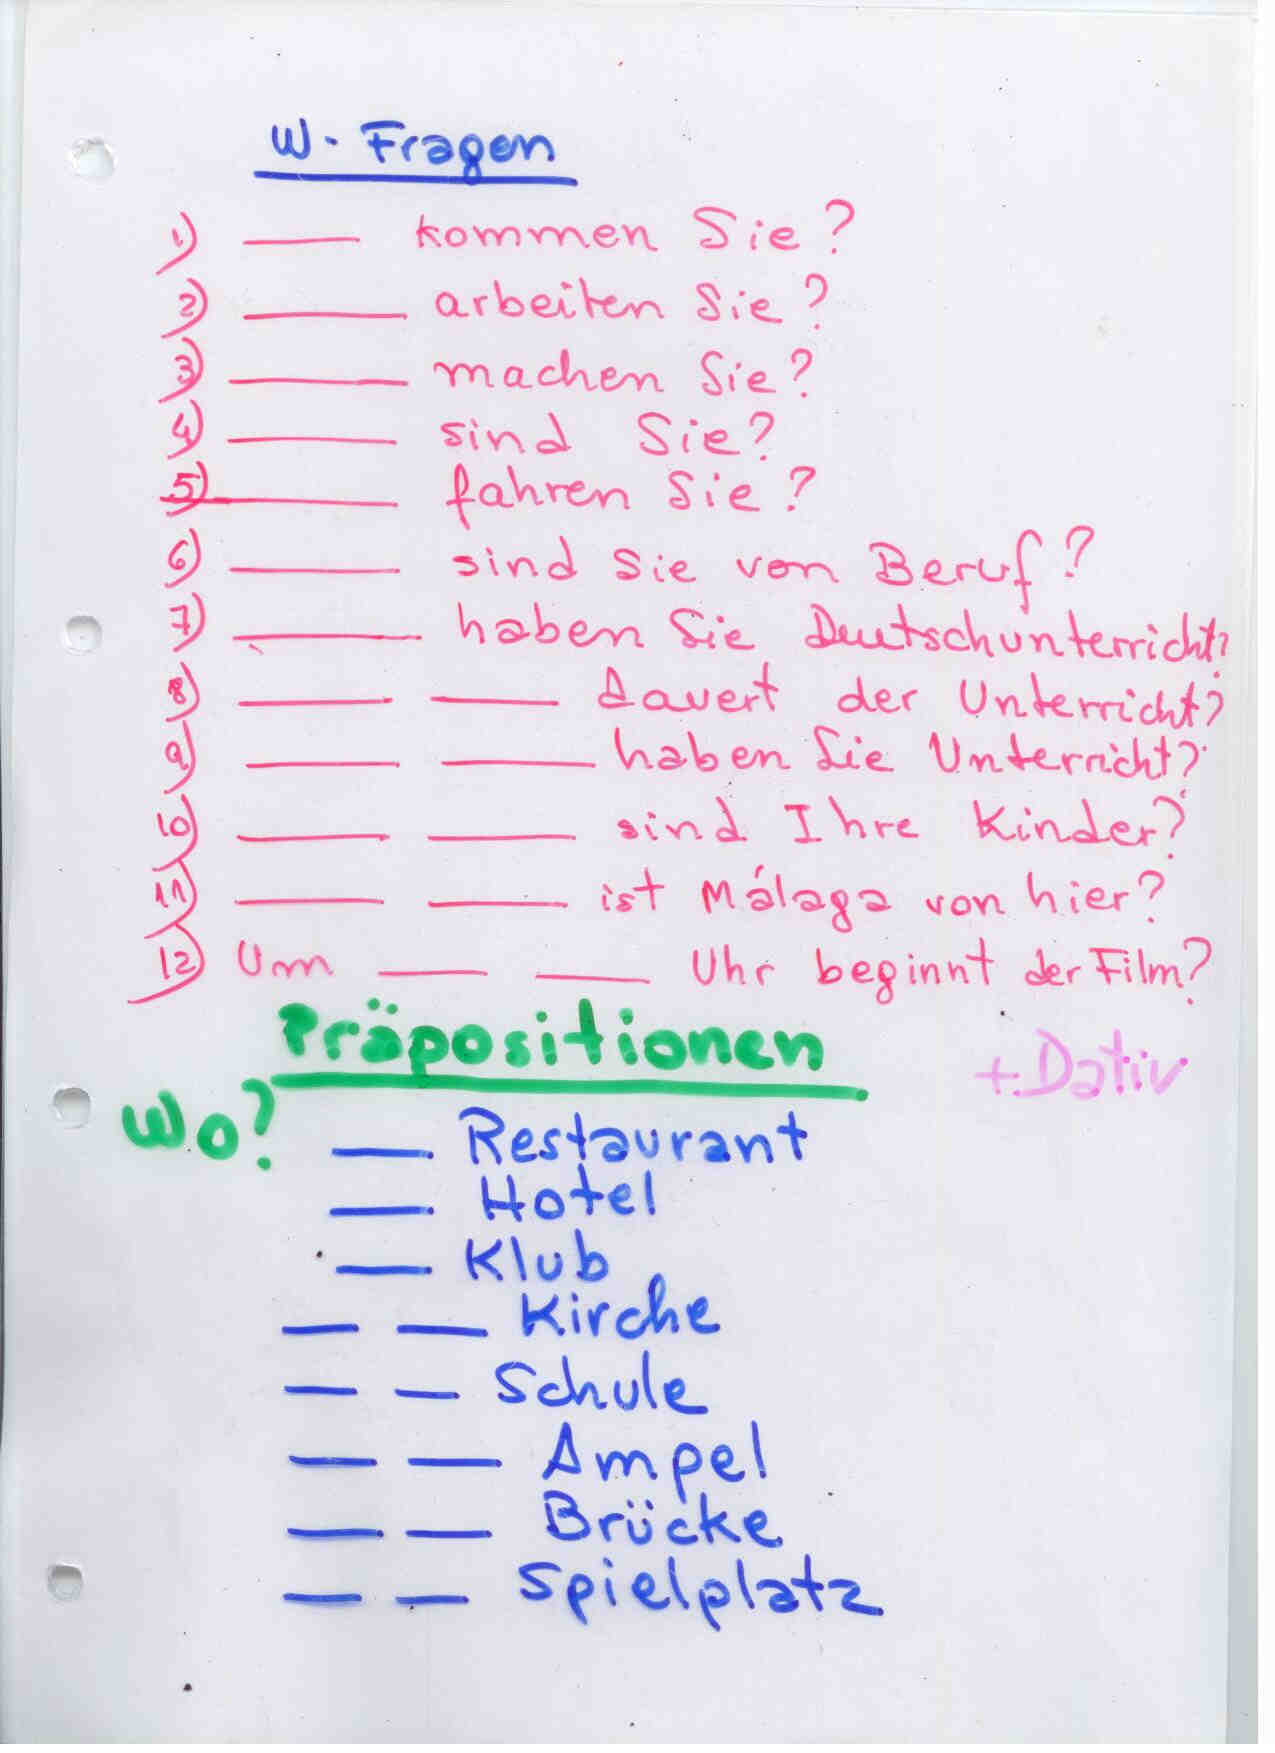 W-Fragen
1) ___ kommen Sie?
2) ___ arbeiten Sie?
3) ___ machen Sie?
4) ___ sind Sie?
5) ___ fahren Sie?
6) ___ sind Sie von Beruf?
7) ___ haben Sie Deutschunterricht?
8) ___ ___ dauert der Unterricht?
9) ___ ___ haben Sie Unterricht?
10) ___ ___ sind Ihre Kinder?
11) ___ ___ ist Málaga von hier?
12) Um ___ ___ Uhr beginnt der Film?
Präpositionen + Dativ
Wo? ___ Restaurant
___ Hotel
___ Klub
___ ___ Kirche
___ ___ Schule
___ ___ Ampel
___ ___ Brücke
___ ___ Spielplatz